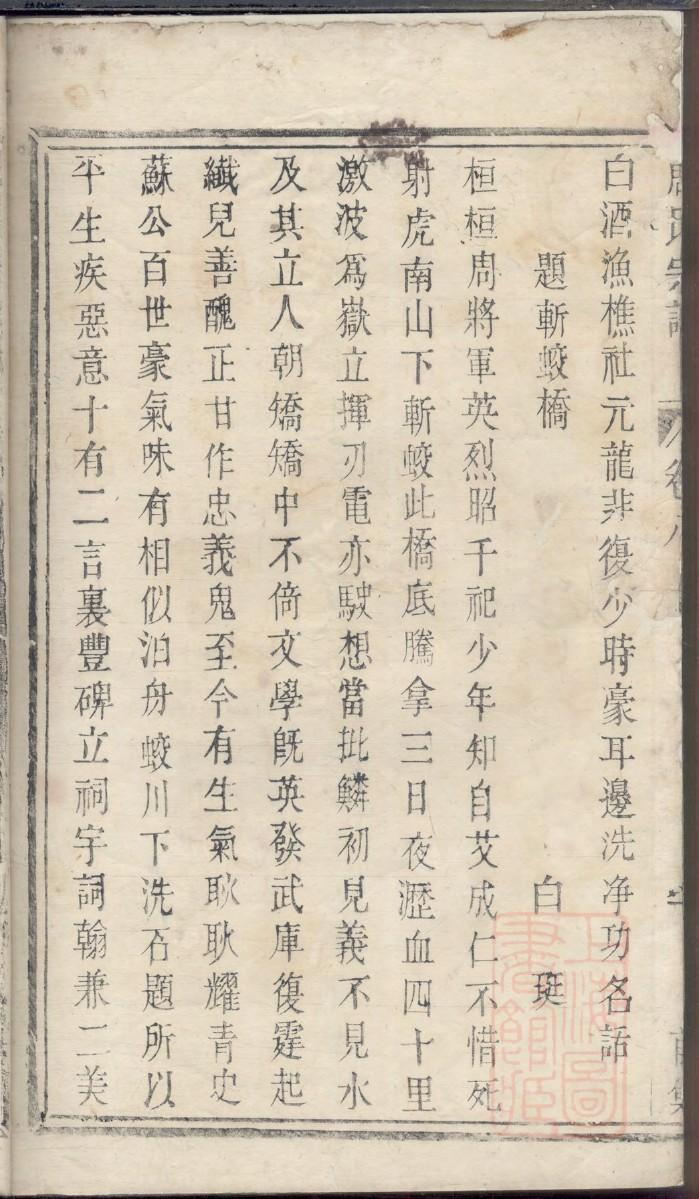 白酒漁樵社元龍非復少時豪耳邊洗净功名話
題斬蛟橋
白珽
桓桓周將軍英烈昭千祀少年知自艾成仁不惜死
射虎南山下斬蛟此橋底騰拿三日夜瀝血四十里
激波為嶽立揮刃電亦駛想當批鱗初見義不見水
及其立人朝矯矯中不倚文學旣英發武庫復霆起
纎兒善醜正甘作忠義鬼至今有生氣耿耿耀青史
蘇公百世豪氣味有相似泊舟蛟川下洗石題所以
平生疾惡意十有二言裏豐碑立祠宇詞翰兼二美